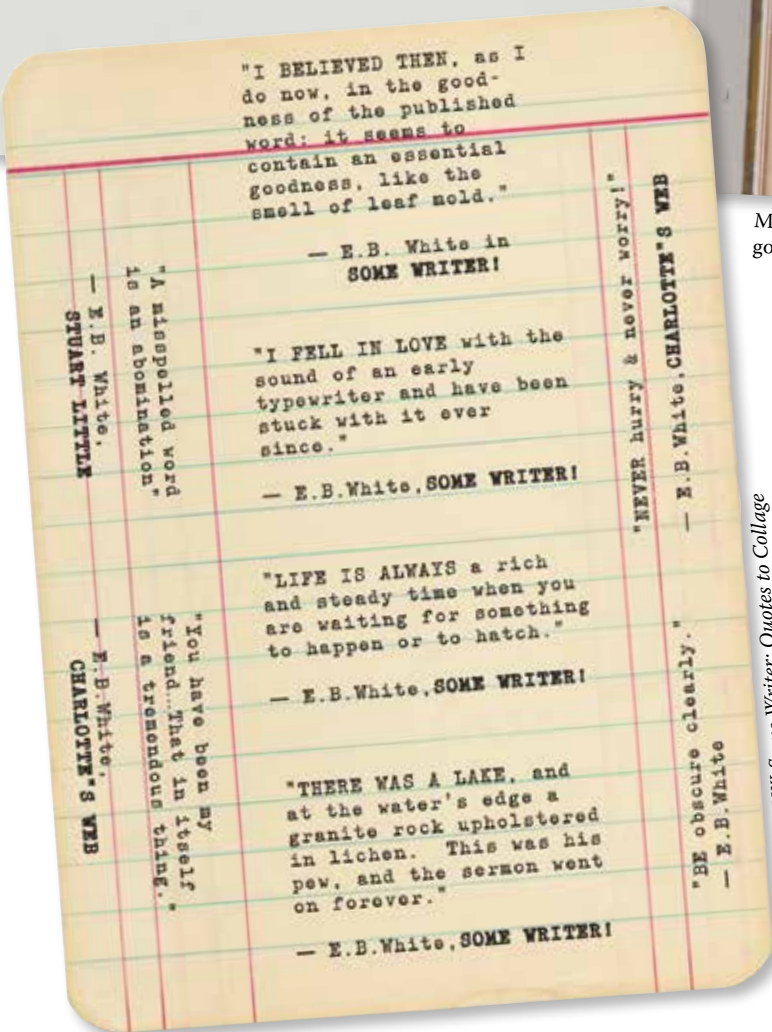 "I BELIEVED THEN, as I
do now, in the good-
ness of the published
word: it seems to
contain an essential
goodness, like the
smell of leaf mold."
— E.B. White in
SOME WRITER!
"I FELL IN LOVE with the
sound of an early
typewriter and have been
stuck with it ever
since."
— E.B.White,SOME WRITER!
"LIFE IS ALWAYS a rich
and steady time when you
are waiting for something
to happen or to hatch."
— E.B.White,SOME WRITER!
"THERE WAS A LAKE, and
at the water's edge a
granite rock upholstered
in lichen. This was his
pew, and the sermon went
on forever."
— E.B.White,SOME WRITER!
"A misspelled word
is an abomination"
— E.B. White,
STUART LITTLE
"You have been my
friend...That in itself
is a tremendous thing."
— E.B.White,
CHARLOTTE"S WEB
"NEVER hurry & never worry!"
— E.B.White,CHARLOTTE"S WEB
"BE obscure clearly."
— E.B.White
Writer: Quotes to Collage